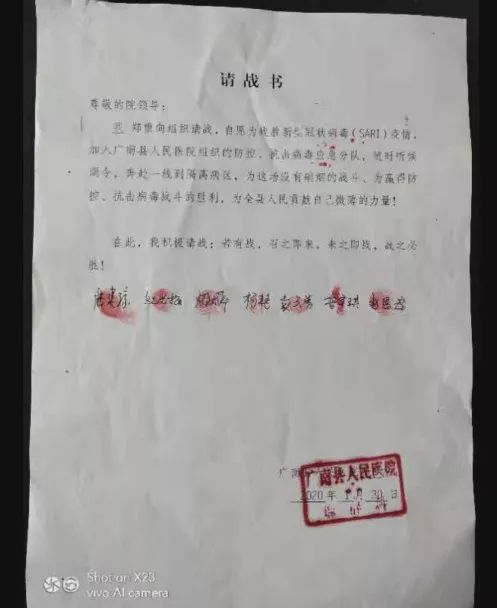 请战书
尊敬的院领导：
我 郑重向组织请战，自愿为战胜新型冠状病毒（SARI）疫情，
加入广南县人民医院组织的防控、抗击病毒应急分队，随时听候
调令，奔赴一线到隔离病区，为这场没有硝烟的战斗、为赢得防
控、抗击病毒战斗的胜利，为全县人民贡献自己微薄的力量！
在此，我积极请战：若有战，召之即来，来之即战，战之必
胜！
广南县人民医院
2020 年 1 月 30 日
Shot on X23
vivo AI camera